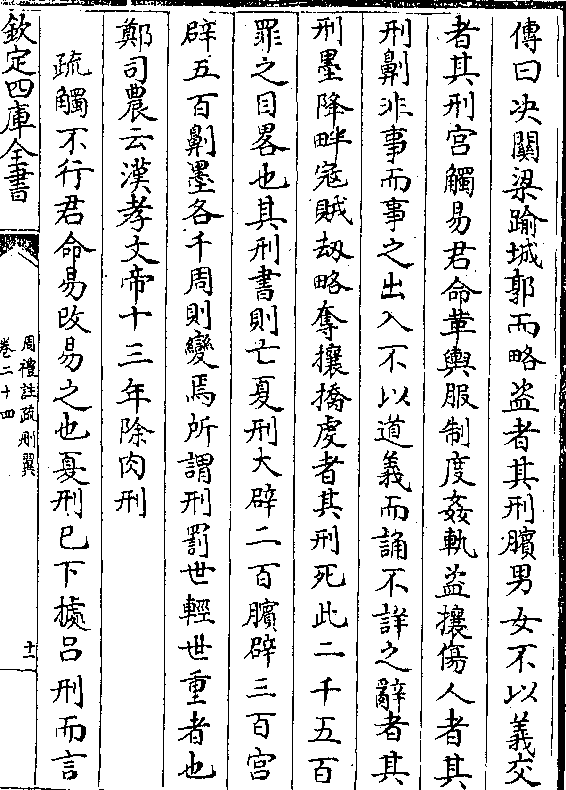 傳曰决關梁踰城郭而略盗者其刑臏男女不以義交
者其刑宫觸易君命革輿服制度姦軌盗攘傷人者其
刑劓非事而事之出入不以道義而誦不詳之辭者其
刑墨降畔寇賊刼略奪攘撟虔者其刑死此二千五百
罪之目畧也其刑書則亡夏刑大辟二百臏辟三百宫
辟五百劓墨各千周則變焉所謂刑罰世輕世重者也
鄭司農云漢孝文帝十三年除肉刑
疏觸不行君命易改易之也夏刑已下據吕刑而言
欽定四庫全書
周禮註疏刪翼
卷二十四
十一